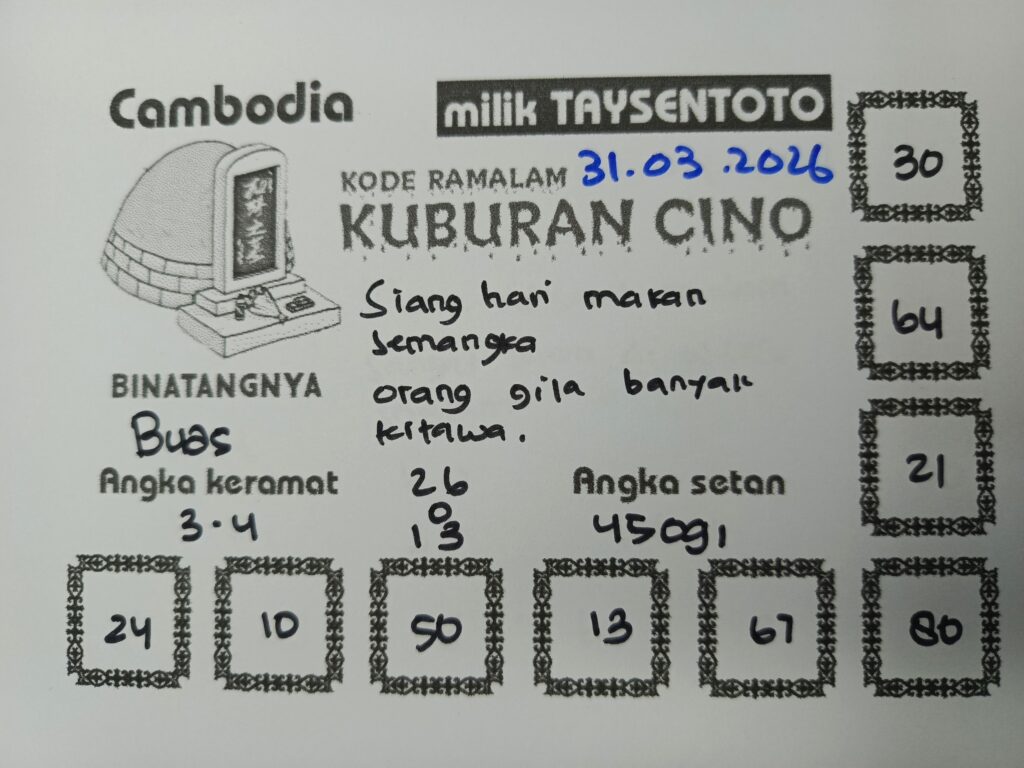 Cambodia
milik TAYSENTOTO
KODE RAMALAM 31.03.2026
KUBURAN CINO
Siang hari makan
semangka
orang gila banyak
ketawa.
BINATANGNYA
Buas
Angka keramat
3.4
26
0
13
Angka setan
45091
30
64
21
24
10
50
13
67
80